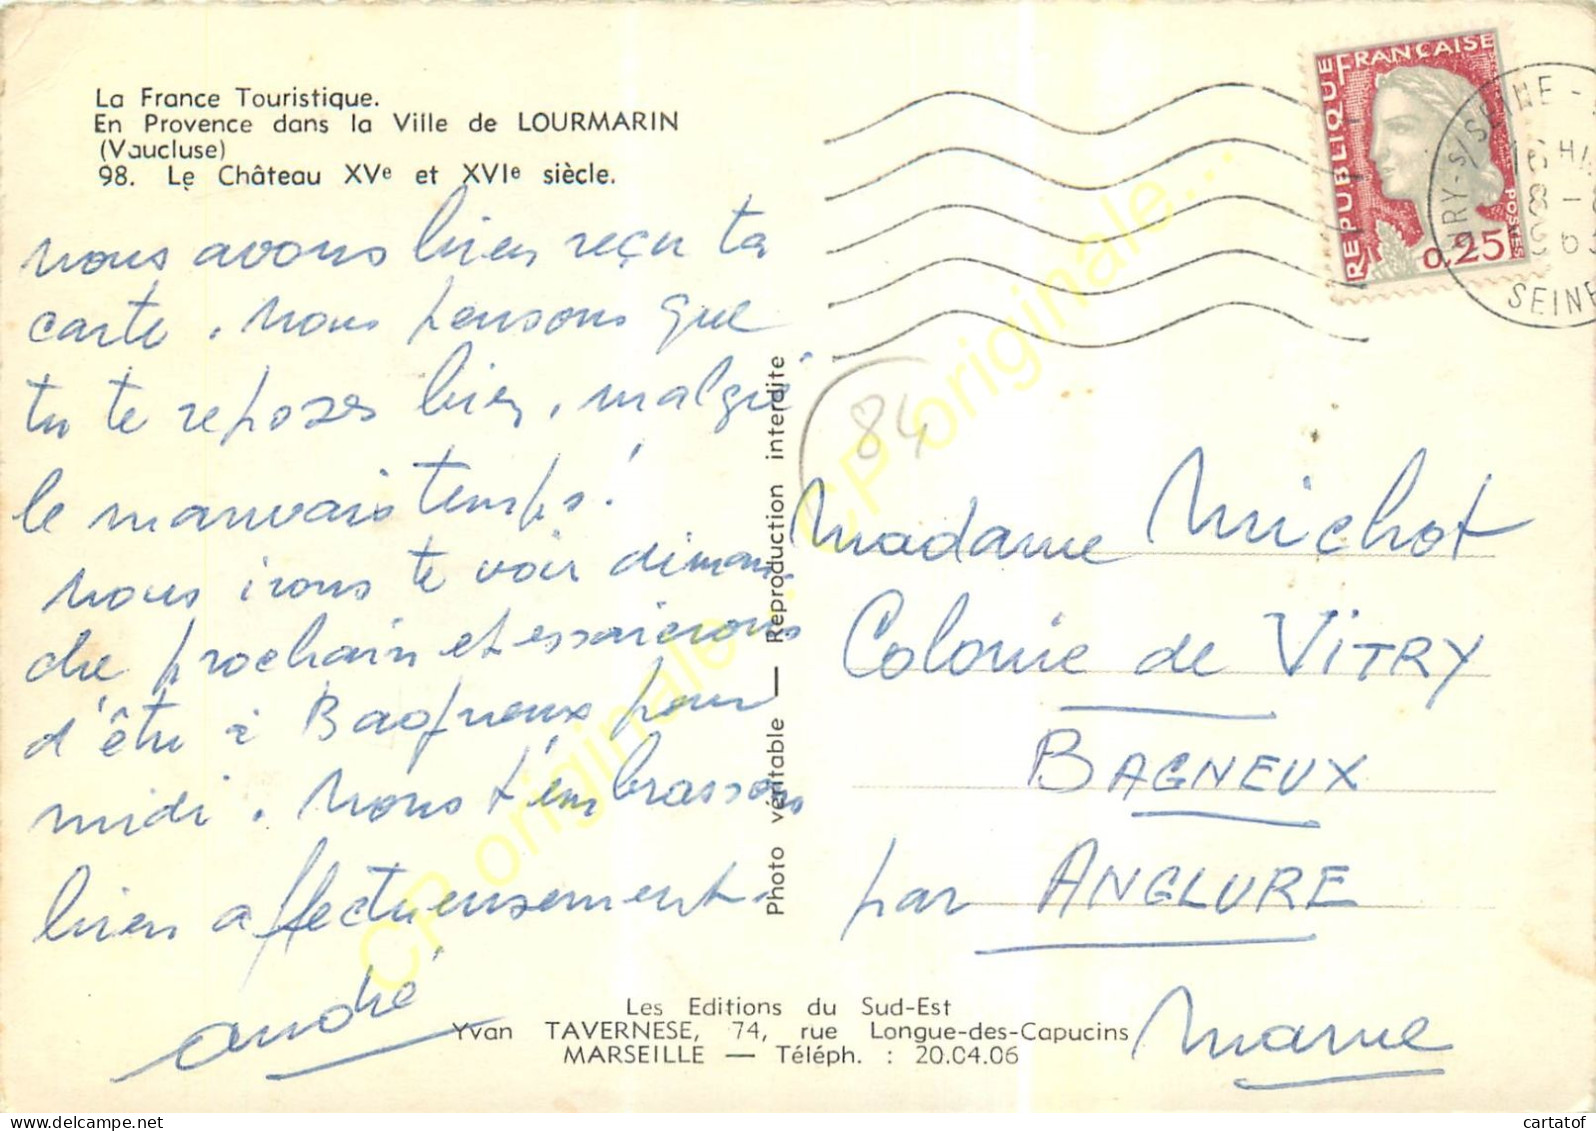 La France Touristique.
En Provence dans la Ville de LOURMARIN
(Vaucluse)
98. Le Château XVe et XVIe siècle.
nous avons bien reçu ta
carte. nous pensons que
tu te reposes bien, malgré
le mauvais temps!
nous irons te voir diman-
che prochain et essaierons
d'être à Bagneux pour
midi. Nous t'embrassons
bien affectueusement.
andré
Photo véritable — Reproduction interdite
REPUBLIQUE FRANÇAISE
POSTES
0,25
SEINE
84
Madame Michot
Colonie de VITRY
BAGNEUX
par ANGLURE
Marne
Les Editions du Sud-Est
Yvan TAVERNESE, 74, rue Longue-des-Capucins
MARSEILLE — Téléph. : 20.04.06
CP originale... CP originale...
cartatof